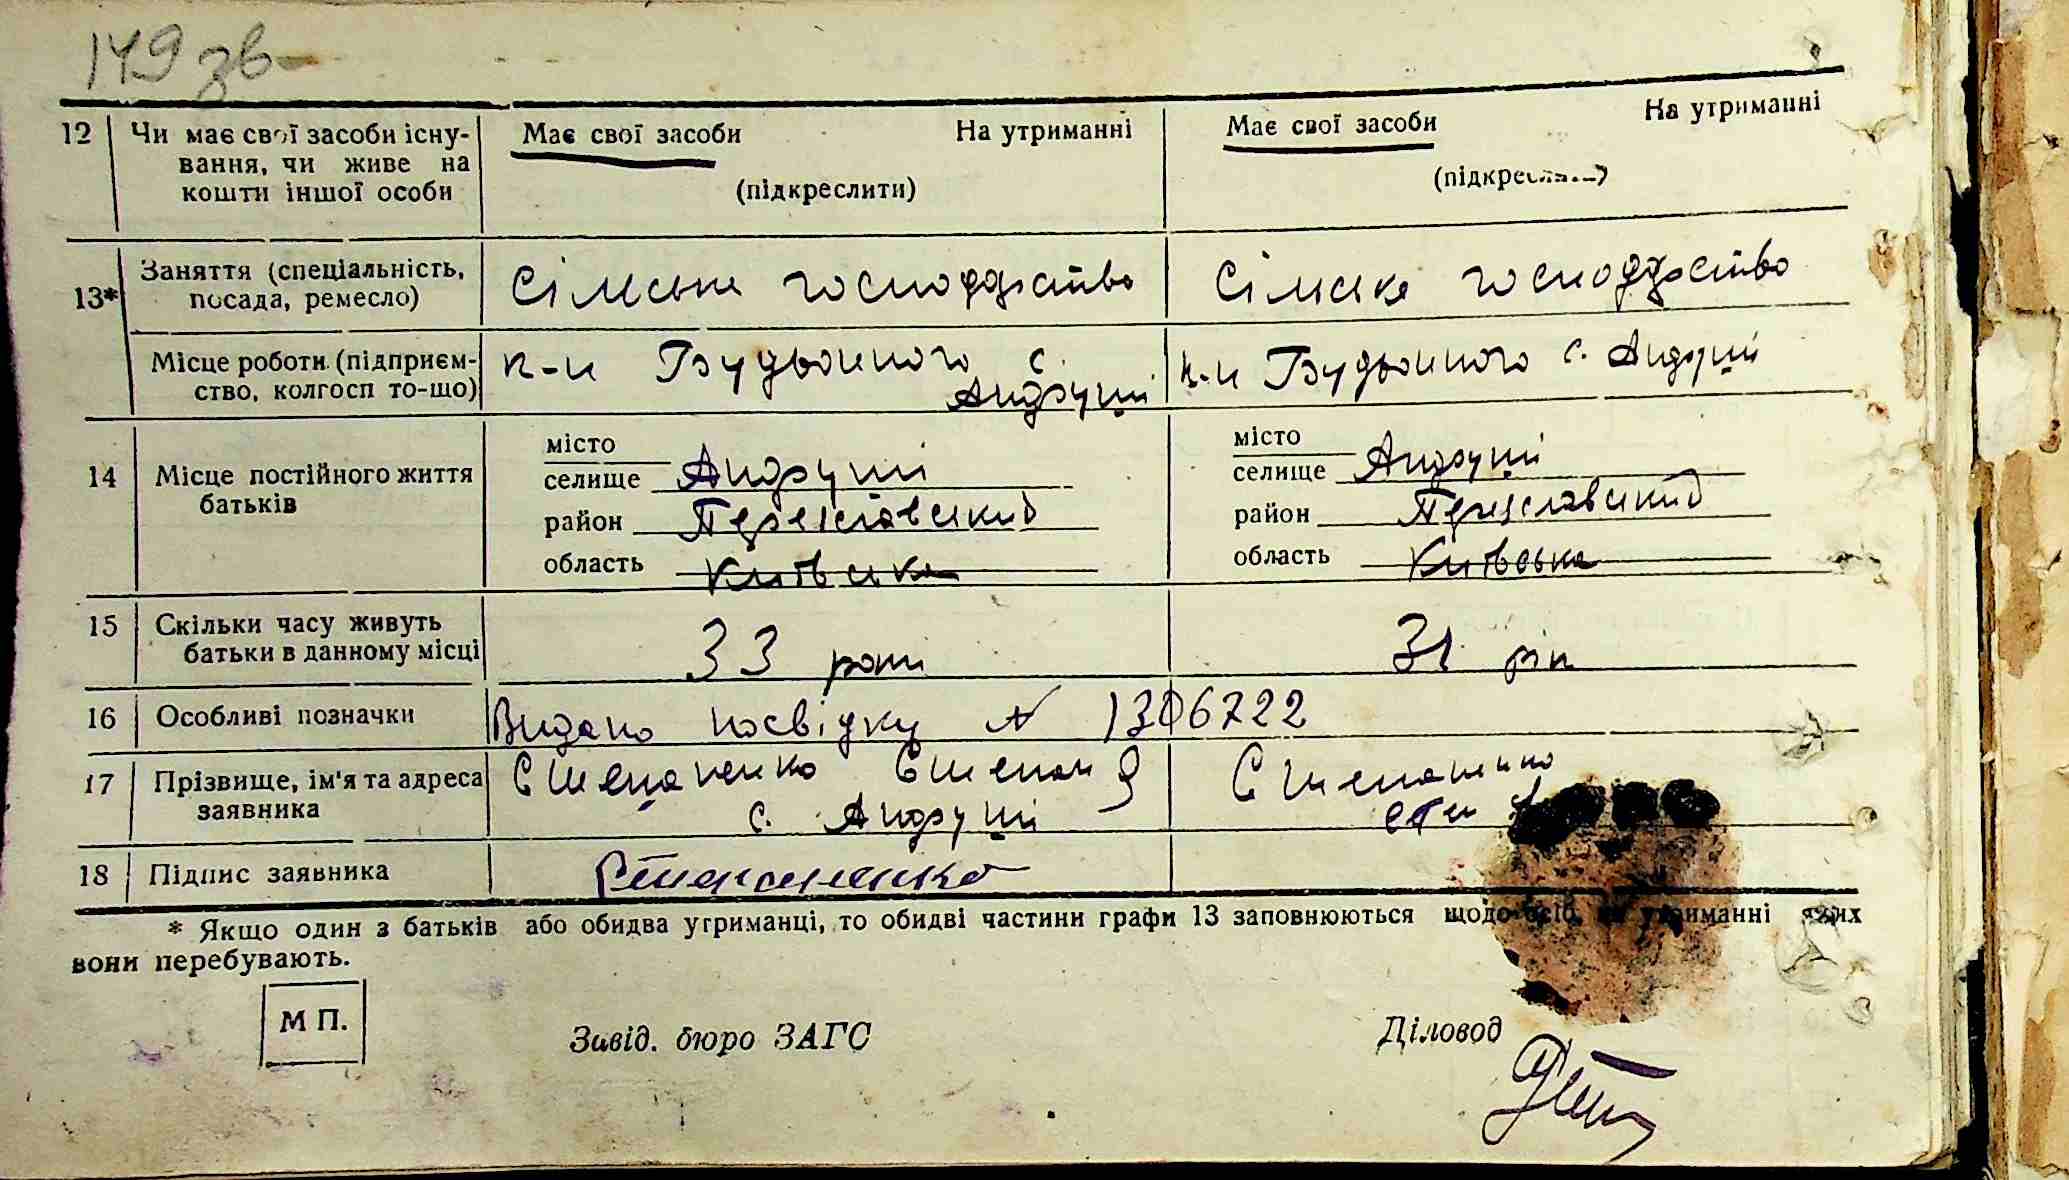 149 зв
12 Чи має свої засоби існу- Має свої засоби На утриманні Має свої засоби На утриманні
вання, чи живе на
кошти іншої особи (підкреслити) (підкреслити)
13* Заняття (спеціальність, Сільське господарство Сільське господарство
посада, ремесло)
Місце роботи (підприєм- к-п Будьонного с. к-п Будьонного с. Андруші
ство, колгосп то-що) Андруші
14 Місце постійного життя батьків місто місто
селище Андруші селище Андруші
район Переяславський район Переяславський
область Київська область Київська
15 Скільки часу живуть 33 роки 31 рік
батьки в данному місці
16 Особливі позначки Видано посвідку № 1306722
17 Прізвище, ім'я та адреса Степаненко Степан Я Степаненко
заявника с. Андруші
18 Підпис заявника Степаненко
* Якщо один з батьків або обидва утриманці, то обидві частини графи 13 заповнюються щодо осіб, на утриманні яких
вони перебувають.
М П.
Завід. бюро ЗАГС Діловод